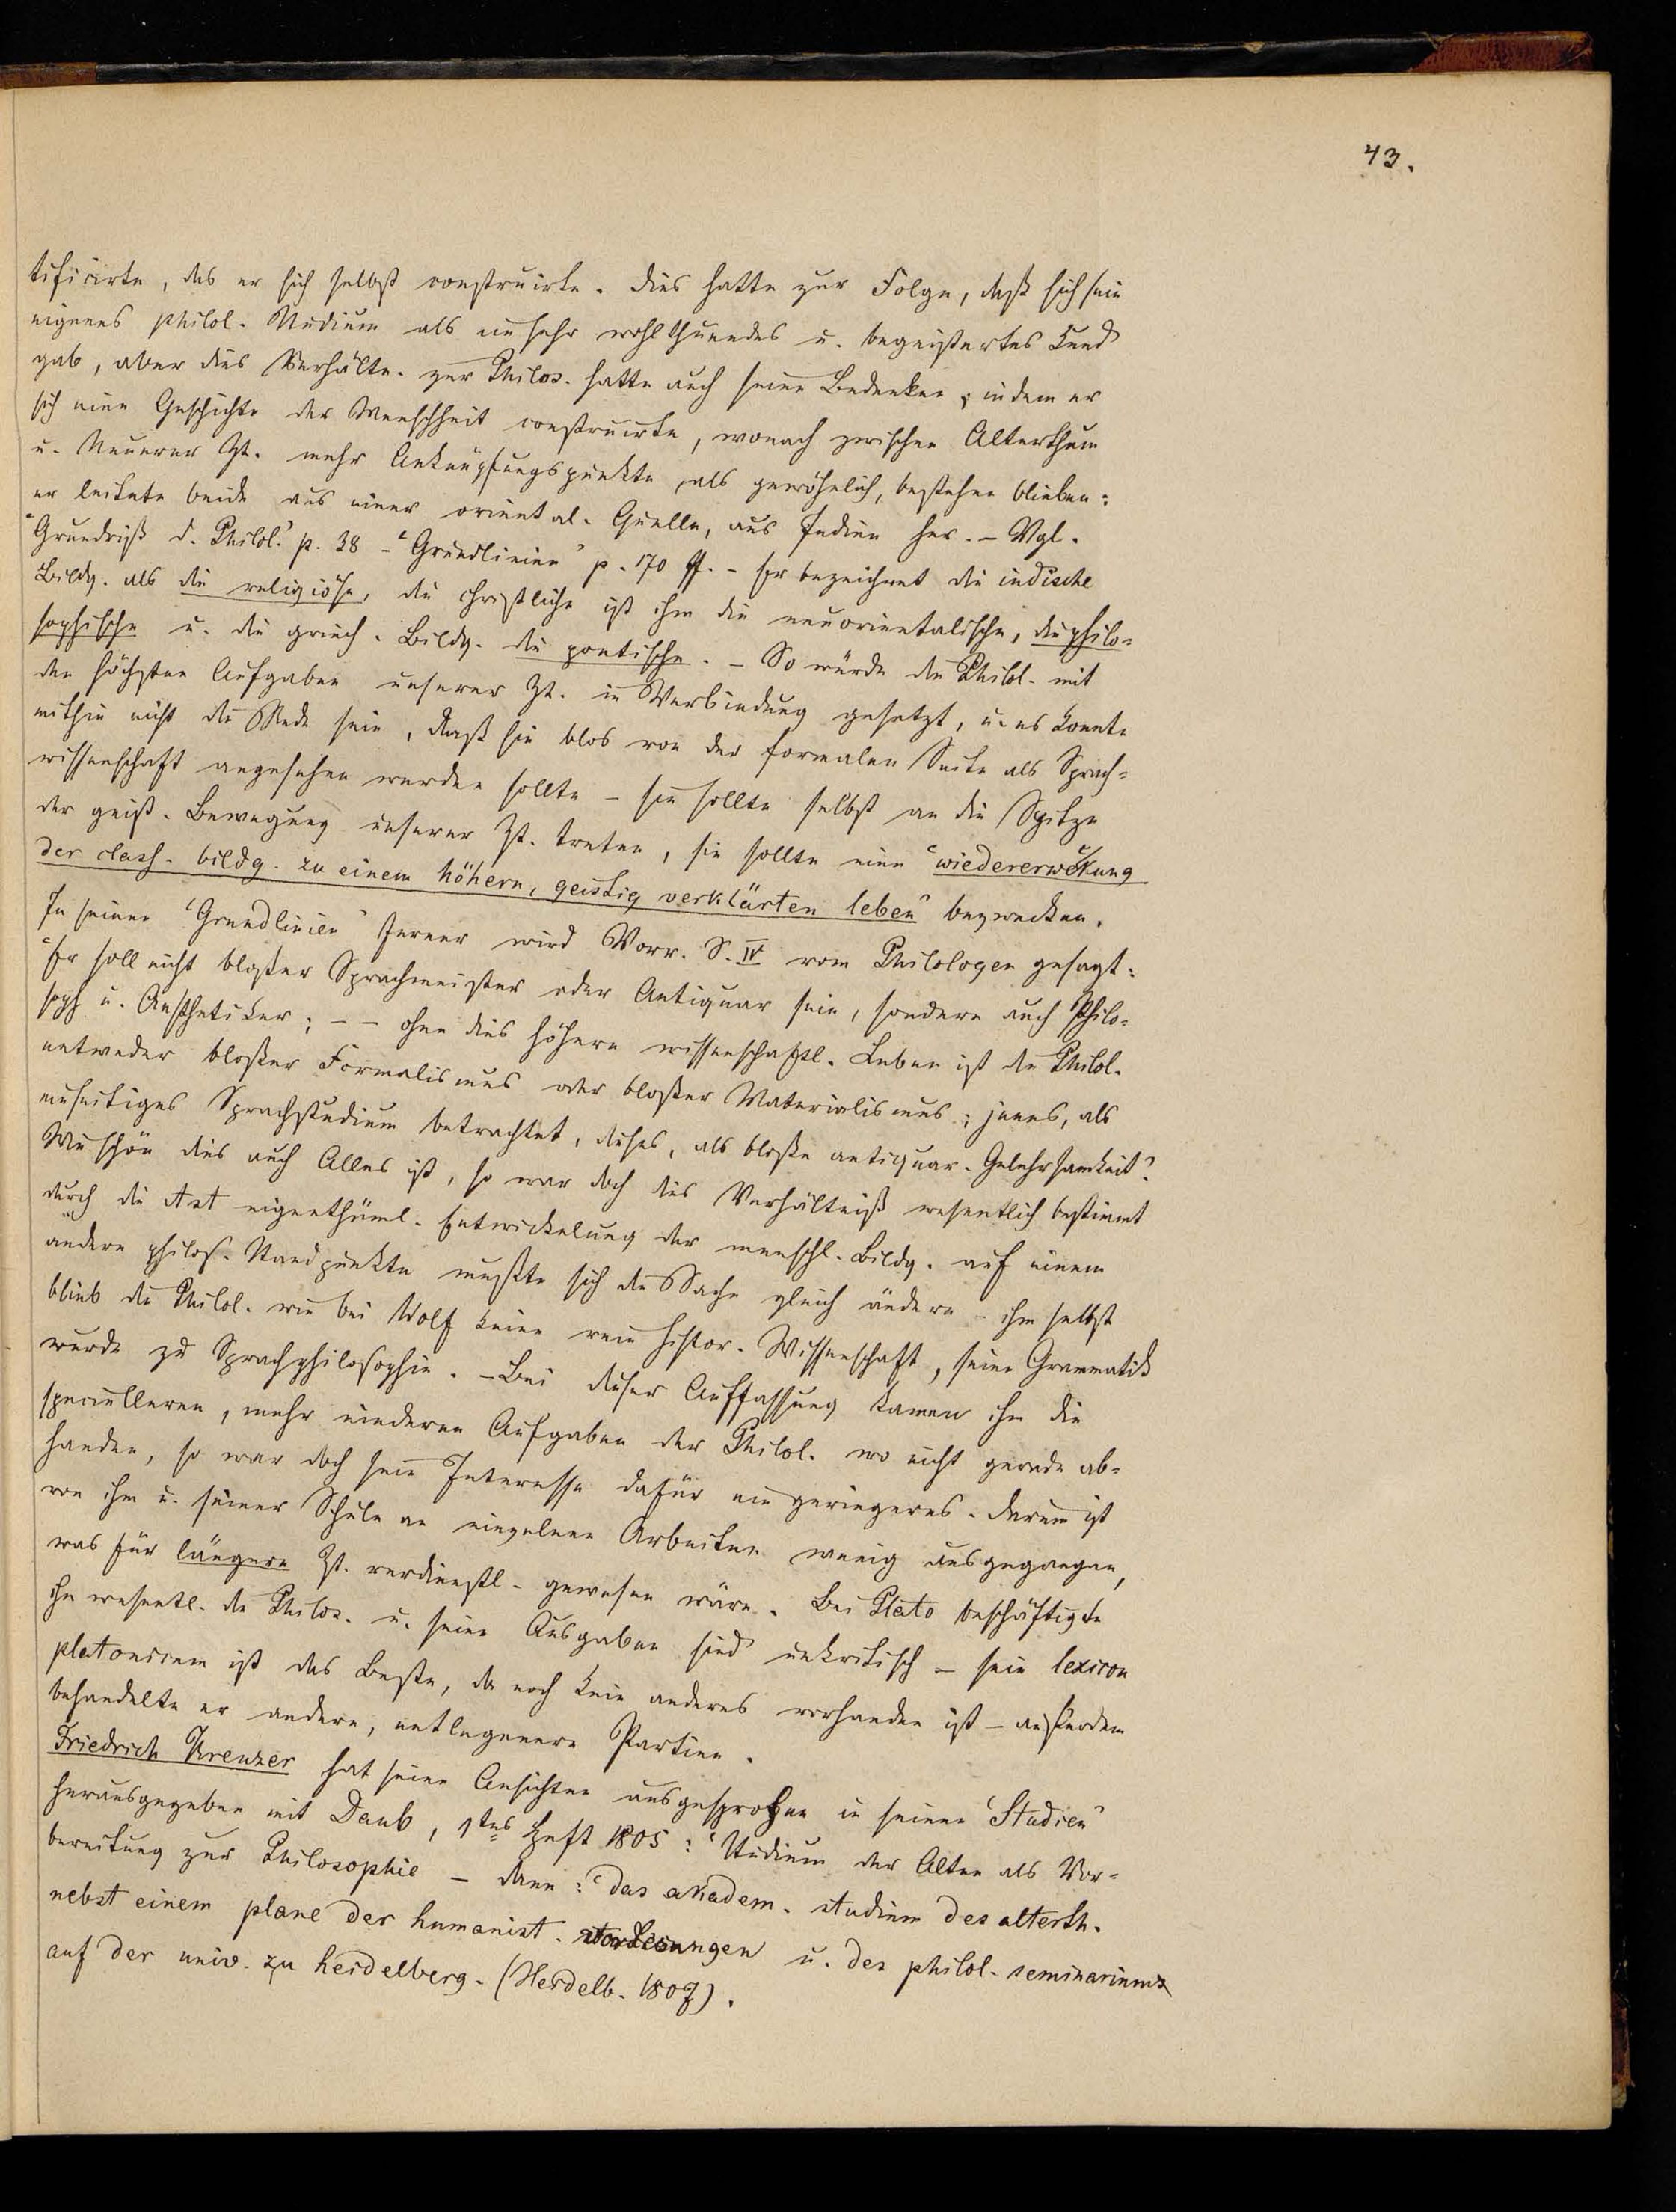 43.
tificirte, das er sich selbst construirte. Dies hatte zur Folge, daß sich sein
eigenes philol. Studium als ein sehr wohlthuendes u. begeistertes kund
gab, aber dies Verhältn. zur Philos. hatte auch seine Bedenken, indem er
sich eine Geschichte der Menschheit construirte, wonach zwischen Alterthum
u. Neuerer Zt. mehr Anknüpfungspunkte, als gewöhnlich, bestehen blieben:
er leitete beide aus einer oriental. Quelle, aus Indien her. – Vgl.
"Grundriß d. Philol." p. 38 – "Grundlinien" p. 170 ff. – Er bezeichnet die indische
Bildg. als die religiöse, die christliche ist ihm die neuorientalische, die philo=
sophische u. die griech. Bildg. die poetische. – So würde die Philol. mit
den höchsten Aufgaben unserer Zt. in Verbindung gesetzt, u. es konnte
mithin nicht die Rede sein, daß sie blos von der formalen Seite als Sprach=
wissenschaft angesehen werden sollte – sie sollte selbst an die Spitze
der geist. Bewegung unserer Zt. treten, sie sollte eine "wiedererweckung
der class. bildg. zu einem höhern, geistig verklärten leben" bezwecken.
In seinen "Grundlinien" ferner wird Vorr. S. IV vom Philologen gesagt:
"Er soll nicht bloßer Sprachmeister oder Antiquar sein, sondern auch Philo=
soph u. Aesthetiker; – – ohne dies höhere wissenschaftl. Leben ist die Philol.
entweder bloßer Formalismus oder bloßer Materialismus; jenes, als
einseitiges Sprachstudium betrachtet, dieses, als bloße antiquar. Gelehrsamkeit".
Wie schön dies auch Alles ist, so war doch dies Verhältniß wesentlich bestimmt
durch die Art eigenthüml. Entwickelung der menschl. Bildg. auf einem
andern philos. Standpunkte mußte sich die Sache gleich ändern – ihm selbst
blieb die Philol. wie bei Wolf keine rein histor. Wissenschaft, seine Grammatik
wurde zu Sprachphilosophie. – Bei dieser Auffassung kamen ihm die
specielleren, mehr niederen Aufgaben der Philol. wo nicht gerade ab=
handen, so war doch sein Interesse dafür ein geringeres. Darum ist
von ihm u. seiner Schule an einzelnen Arbeiten wenig ausgegangen,
was für längere Zt. verdienstl. gewesen wäre. Bei Plato beschäftigte
ihn wesentl. die Philos. u. seine Ausgaben sind unkritisch – sein lexicon
platonicum ist das Beste, da noch kein anderes vorhanden ist – außerdem
behandelte er andere, entlegenere Partien.
Friedrich Kreuzer hat seine Ansichten ausgesprochen in seinen "Studien"
herausgegeben mit Daub, 1tes Heft 1805: "Studium der Alten als Vor=
bereitung zur Philosophie – dann: "das akadem. studium des alterth.
nebst einem plane der humanist. vorlesungen u. des philol. seminariums
auf der univ. zu heidelberg. (Heidelb. 1807).